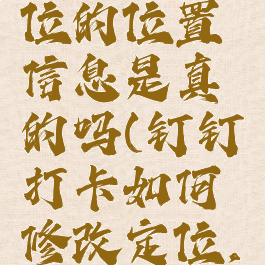 位的位置
信息是真
的吗(钉钉
打卡如何
修改定位.